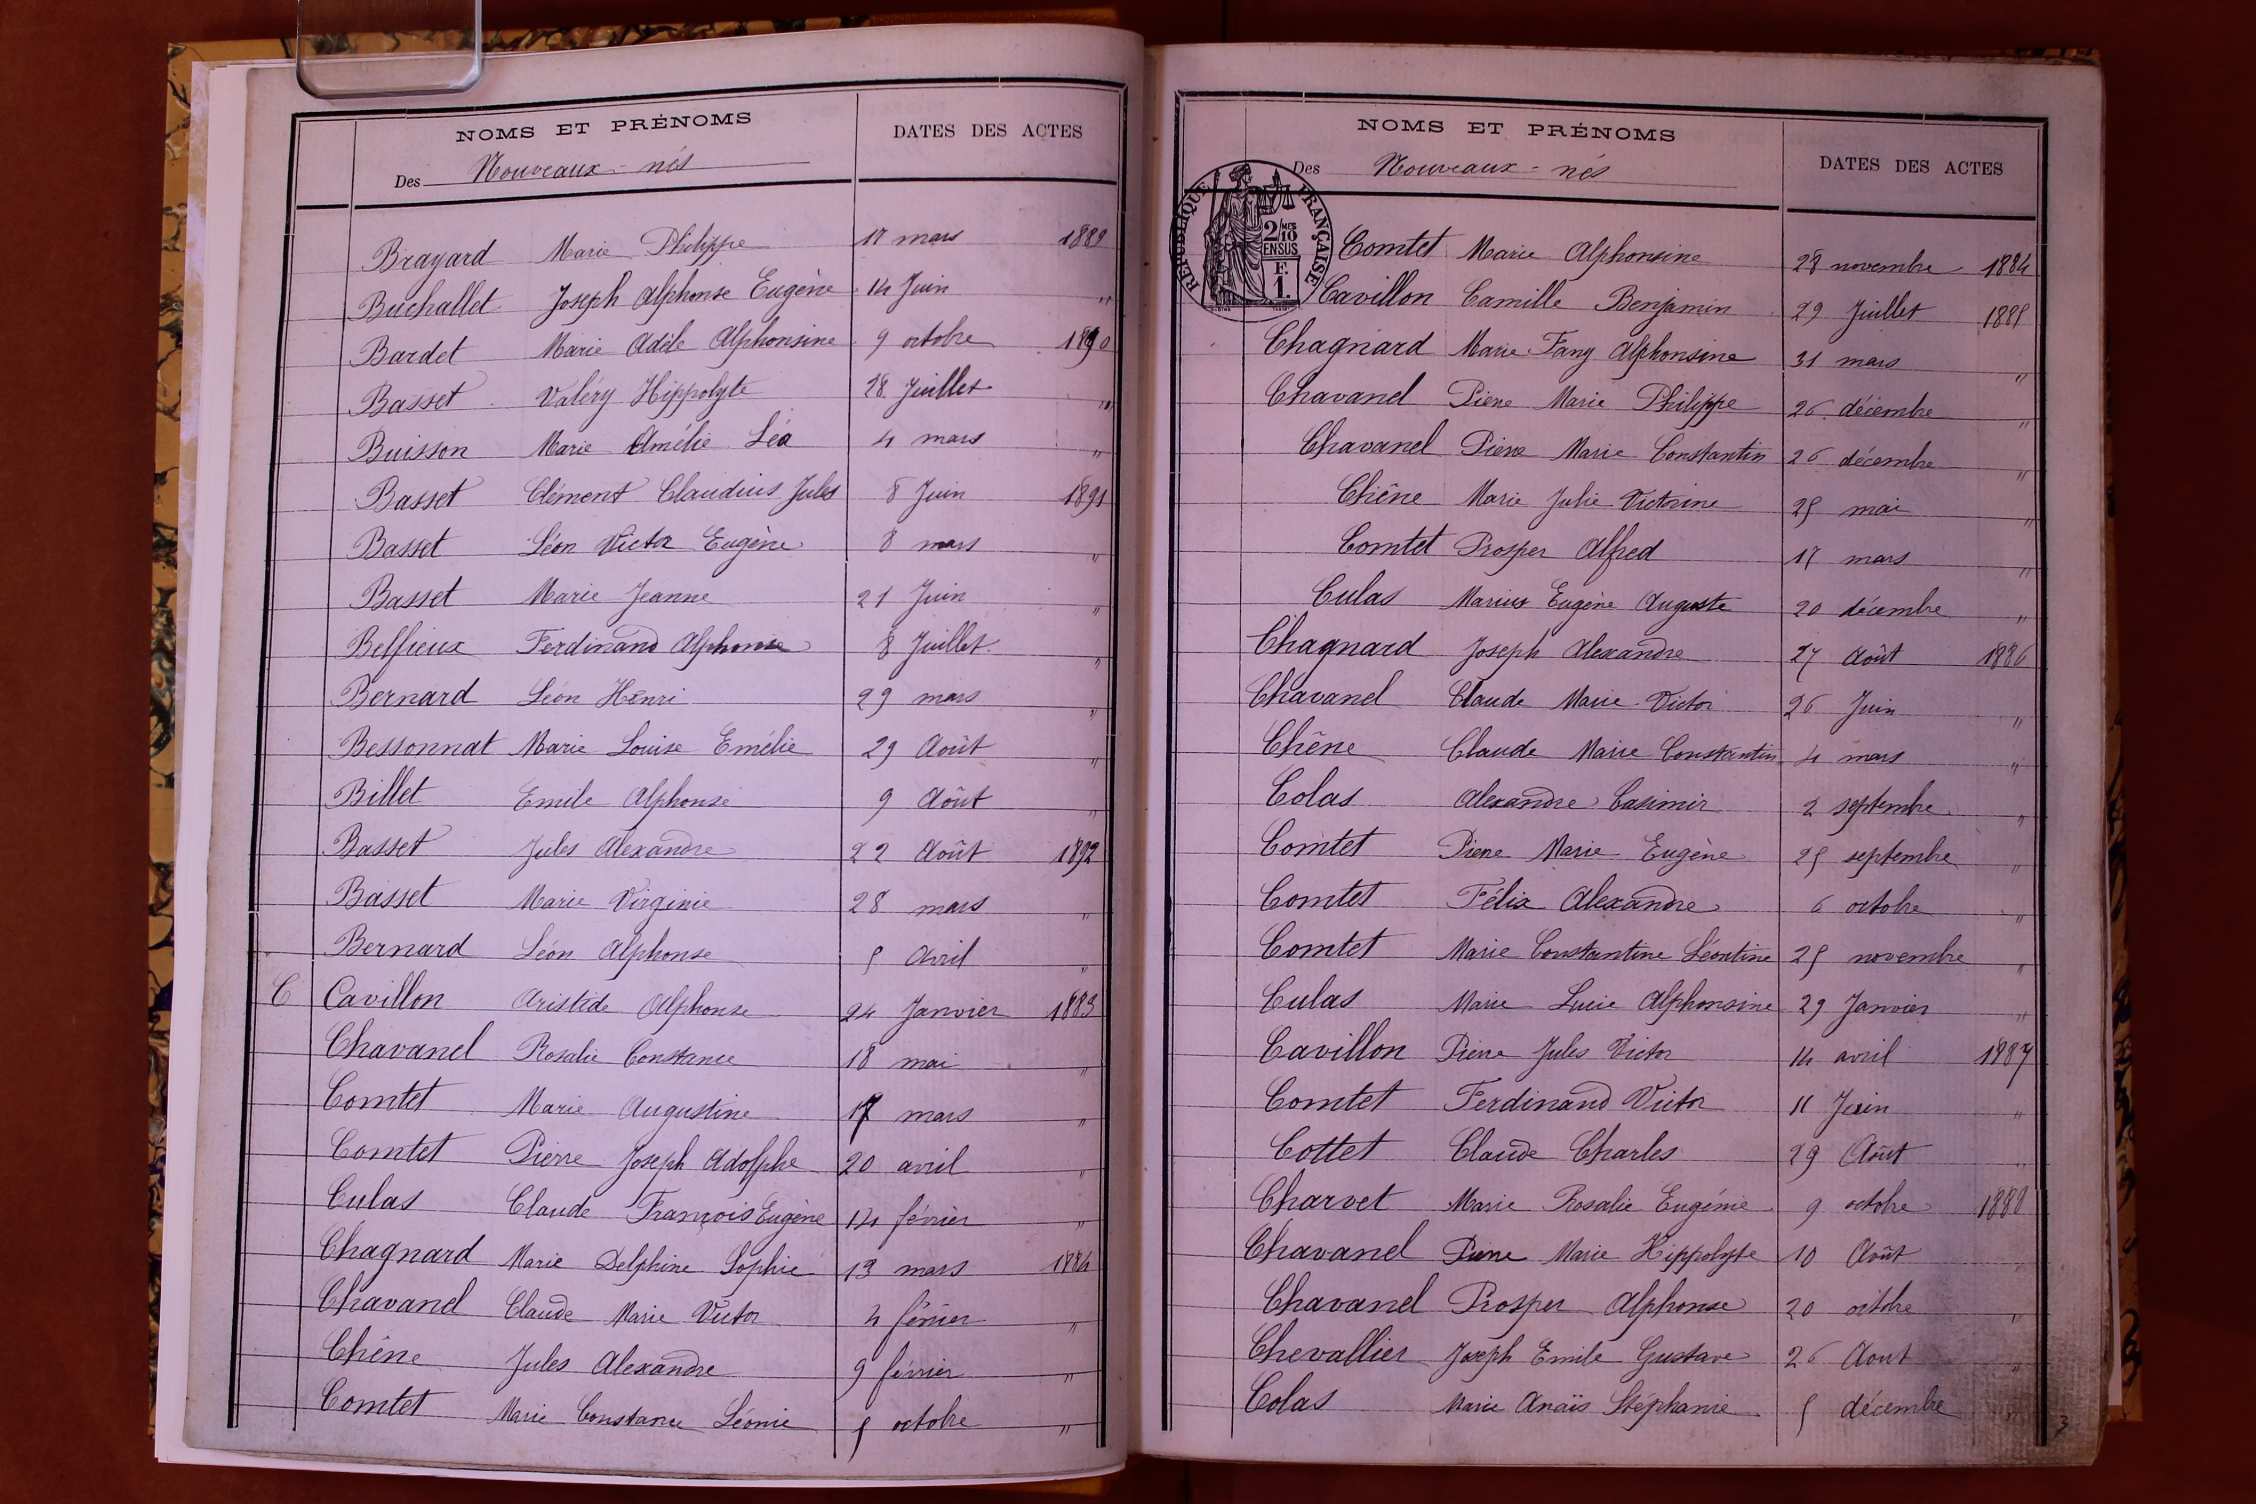 NOMS ET PRÉNOMS DATES DES ACTES
Des Nouveaux-nés
Brayard Marie Philippe 17 mars 1889
Buchallet Joseph Alphonse Eugène 14 Juin "
Bardet Marie Adèle Alphonsine 9 octobre 1890
Basset Valéry Hippolyte 28 Juillet "
Buisson Marie Amélie Léa 4 mars "
Basset Clément Claudius Jules 8 Juin 1891
Basset Léon Victor Eugène 8 mars "
Basset Marie Jeanne 21 Juin "
Belfieux Ferdinand Alphonse 8 Juillet "
Bernard Léon Henri 29 mars "
Bessonnat Marie Louise Emélie 29 Août "
Billet Emile Alphonse 9 Août "
Basset Jules Alexandre 22 Août 1892
Basset Marie Virginie 28 mars "
Bernard Léon Alphonse 5 Avril "
C Cavillon Aristide Alphonse 24 Janvier 1883
Chavanel Rosalie Constance 18 mai "
Comtet Marie Augustine 17 mars "
Comtet Pierre Joseph Adolphe 20 avril "
Culas Claude François Eugène 14 février "
Chagnard Marie Delphine Sophie 13 mars 1884
Chavanel Claude Marie Victor 4 février "
Chêne Jules Alexandre 9 février "
Comtet Marie Constance Léonie 5 octobre "
NOMS ET PRÉNOMS DATES DES ACTES
Des Nouveaux-nés
RÉPUBLIQUE FRANÇAISE
2/10 MES
EN SUS
F.
1.
Comtet Marie Alphonsine 28 novembre 1884
Cavillon Camille Benjamin 29 Juillet 1885
Chagnard Marie Fany Alphonsine 31 mars "
Chavanel Pierre Marie Philippe 26 décembre "
Chavanel Pierre Marie Constantin 26 décembre "
Chêne Marie Julie Victorine 25 mai "
Comtet Prosper Alfred 15 mars "
Culas Marius Eugène Auguste 20 décembre "
Chagnard Joseph Alexandre 27 Août 1886
Chavanel Claude Marie Victor 26 Juin "
Chêne Claude Marie Constantin 4 mars "
Colas Alexandre Casimir 2 septembre "
Comtet Pierre Marie Eugène 25 septembre "
Comtet Félix Alexandre 6 octobre "
Comtet Marie Constantine Léontine 25 novembre "
Culas Marie Lucie Alphonsine 29 Janvier "
Cavillon Pierre Jules Victor 14 avril 1887
Comtet Ferdinand Victor 11 Juin "
Cottet Claude Charles 29 Août "
Charvet Marie Rosalie Eugénie 9 octobre 1888
Chavanel Pierre Marie Hippolyte 10 Août "
Chavanel Prosper Alphonse 20 octobre "
Chevallier Joseph Emile Gustave 26 Aout "
Colas Marie Anaïs Stéphanie 5 décembre "
3